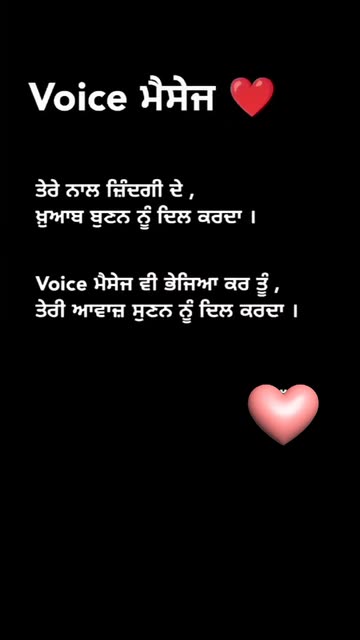 Voice ਮੈਸੇਜ ❤️
ਤੇਰੇ ਨਾਲ ਜ਼ਿੰਦਗੀ ਦੇ ,
ਖ਼ੁਆਬ ਬੁਣਨ ਨੂੰ ਦਿਲ ਕਰਦਾ ।
Voice ਮੈਸੇਜ ਵੀ ਭੇਜਿਆ ਕਰ ਤੂੰ ,
ਤੇਰੀ ਆਵਾਜ਼ ਸੁਣਨ ਨੂੰ ਦਿਲ ਕਰਦਾ ।